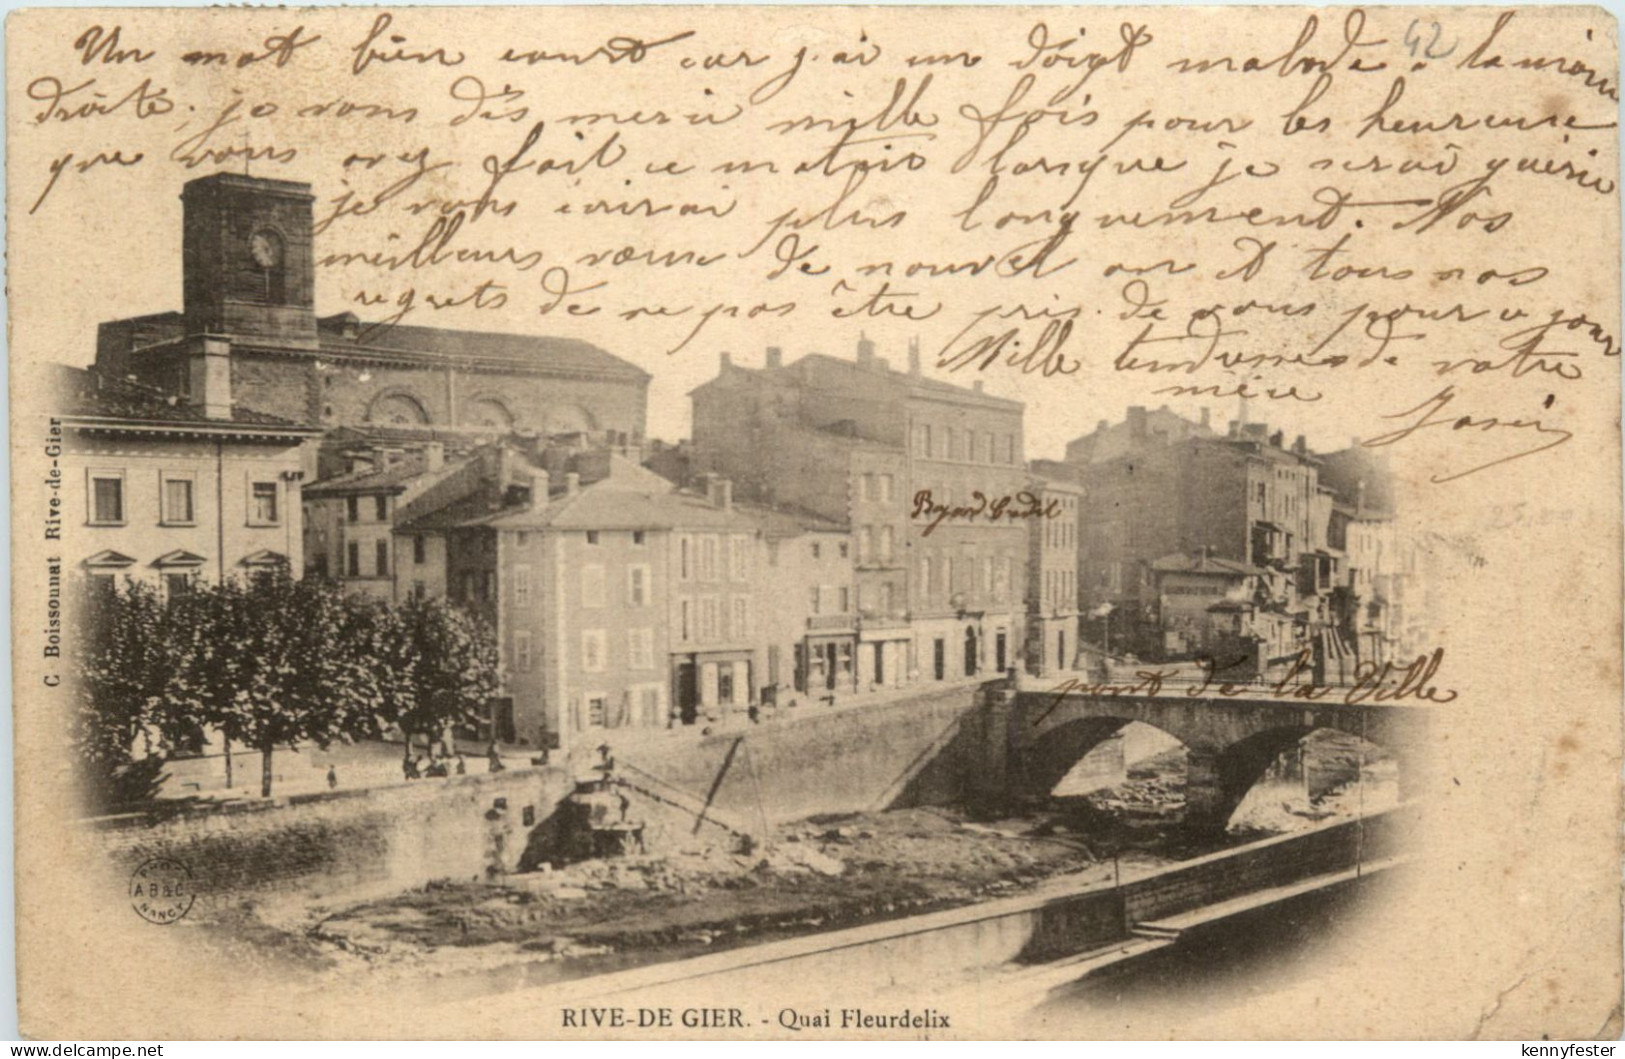 Un mot bien court car j'ai un doigt malade à la main
droite, je vous dis merci mille fois pour les heureuse
que vous avez fait ce matin lorsque je serai guérie
je vous écrirai plus longuement. Nos
meilleurs vœux de nouvel an et tous nos
regrets de ne pas être pris de vous pour ce jour
Mille tendresses de votre
mère
42
C Boissounat Rive-de-Gier
pont de la Ville
PHOT
A B & C
NANCY
RIVE-DE GIER. - Quai Fleurdelix
kennyfester